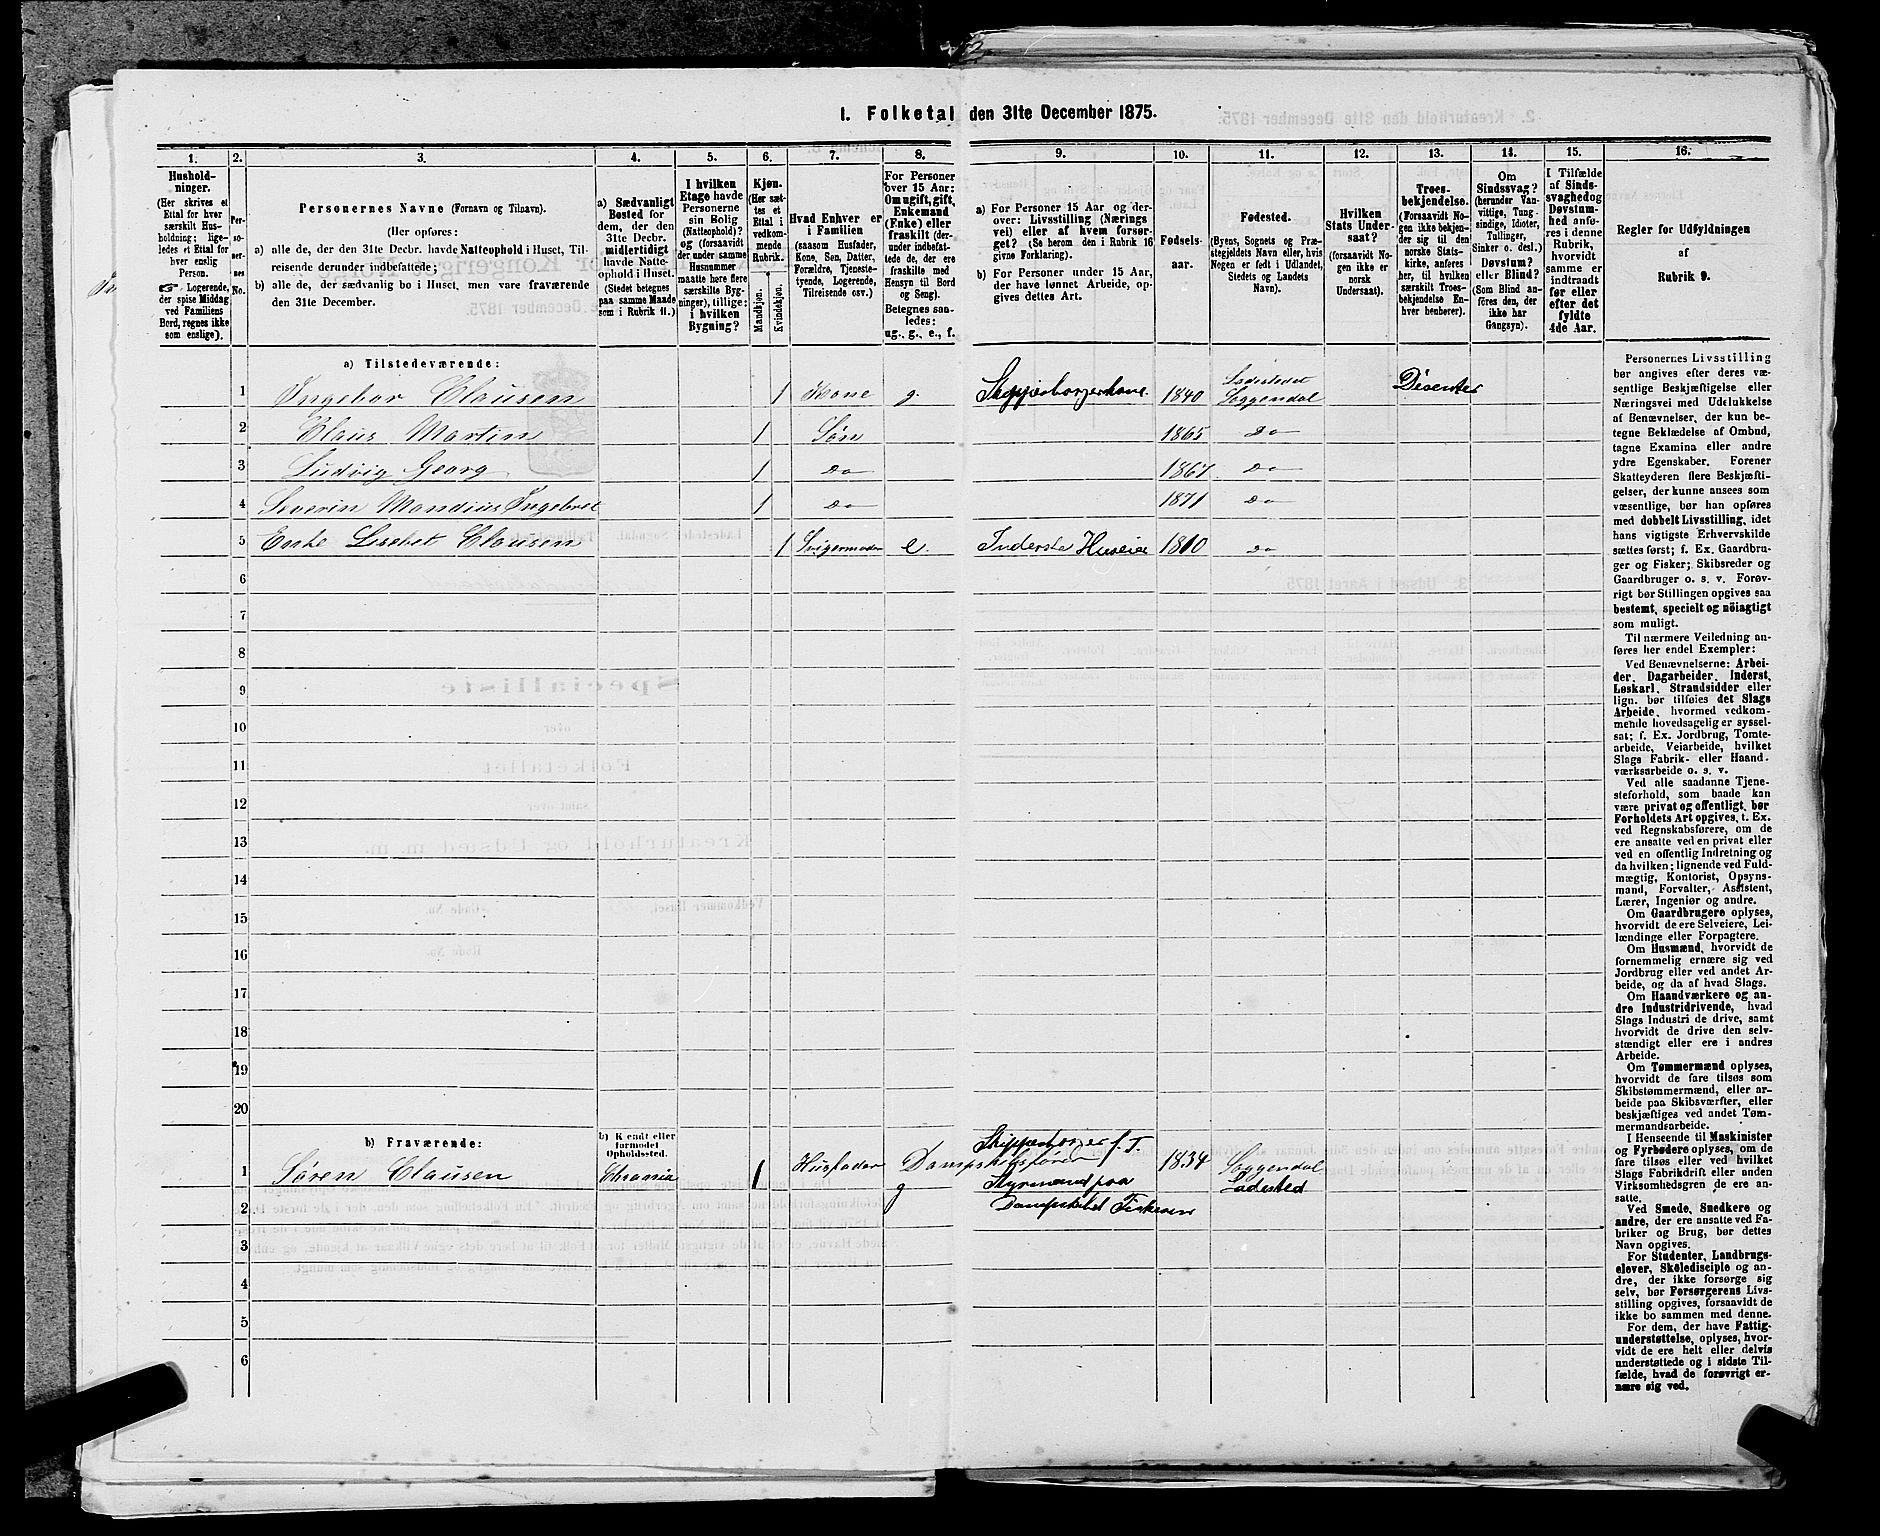 1. Folketal den 31te December 1875.
1. 2. 3. 4. 5. 6. 7. 8. 9. 10. 11. 12. 13. 14. 15. 16.
Hushold-
ninger.
(Her skrives et
Ettal for hver
særskilt Hus-
holdning; lige-
ledes et Ettal for
hver enslig
Person.
☞ Logerende,
der spise Middag
ved Familiens
Bord, regnes ikke
som enslige).
Per-
so-
ner-
nes
No.
Personernes Navne (Fornavn og Tilnavn).
(Her opføres:
a) alle de, der den 31te Decbr. havde Natteophold i Huset, Til-
reisende derunder indbefattede;
b) alle de, der sædvanlig bo i Huset, men vare fraværende
den 31te December.
a) Sædvanligt
Bosted for
dem, der den
31te Decbr.
midlertidigt
havde Natte-
ophold i Huset.
(Stedet betegnes
paa samme Maade
som i Rubrik 11.)
I hvilken
Etage havde
Personerne
sin Bolig
(Natteophold)?
og (forsaavidt
der under samme
Husnummer
maatte høre flere
særskilte Byg-
ninger), tillige:
i hvilken
Bygning?
Kjøn.
(Her sæt-
tes et
Ettal i
vedkom-
mende
Rubrik.
Mandkjøn.
Kvindekjøn.
Hvad Enhver er
i Familien
(saasom Husfader,
Kone, Søn, Datter,
Forældre, Tjeneste-
tyende, Logerende,
Tilreisende osv.)
For Personer
over 15 Aar:
Om ugift, gift,
Enkemand
(Enke) eller
fraskilt (der-
under indbefat-
tede de, der ere
fraskilte med
Hensyn til Bord
og Seng).
Betegnes saa-
ledes:
ug., g., e., f.
a) For Personer 15 Aar og der-
over: Livsstilling (Nærings
vei) eller af hvem forsør-
get? (Se herom den i Rubrik 16
givne Forklaring).
b) For Personer under 15 Aar,
der have lønnet Arbeide, op-
gives dettes Art.
Fødsels-
aar.
Fødested.
(Byens, Sognets og Præ-
stegjeldets Navn eller, hvis
Nogen er født i Udlandet,
Stedets og Landets
Navn).
Hvilken
Stats Under-
saat?
(forsaavidt No-
gen ikke er
norsk
Undersaat).
Troes-
bekjendelse.
(Forsaavidt No-
gen ikke bekjen-
der sig til den
norske Stats-
kirke, anføres
her, til hvilken
særskilt Troes-
bekjendelse En-
hver henhører).
Om
Sindssvag?
(herunder Van-
vittige, Tung-
sindige, Idioter,
Tullinger,
Sinker o. desl.)
Døvstum?
eller Blind?
(Som Blind an-
føres den, der
ikke har
Gangsyn).
I Tilfælde
af Sinds-
svaghed og
Døvstum-
hed anfø-
res i denne
Rubrik,
hvorvidt
samme er
indtraadt
før eller
efter det
fyldte
4de Aar.
Regler for Udfyldningen
af
Rubrik 9.
a) Tilstedeværende:
1 Ingebor Clausen 1 Kone g. Skipperborgerkone. 1840 Ladestedet Soggendal Disenter
2 Claus Martin 1 Søn 1865 Do
3 Ludvig Georg 1 Do 1867 Do
4 Severin Mandius Ingebret 1 Do 1871 Do
5 Enke Lisebet Clausen 1 Svigermoder e. Inderste Huseier 1810 Do
6
7
8
9
10
11
12
13
14
15
16
17
18
19
20
b) Fraværende:
b) Kjendt eller
formodet
Opholdssted.
Skipperborger f. T.
1 Søren Clausen Chrania 1 Husfader Dampskibsfører 1834 Soggendal
g Styrmand paa Ladested
2 Dampskibet Fiskeren
3
4
5
6
Personernes Livsstilling
bør angives efter deres væ-
sentlige Beskjæftigelse eller
Næringsvei med Udelukkelse
af Benævnelser, der kun be-
tegne Beklædelse af Ombud,
tagne Examina eller andre
ydre Egenskaber. Forener
Skatteyderen flere Beskjæfti-
gelser, der kunne ansees som
væsentlige, bør han opføres
med dobbelt Livsstilling, idet
hans vigtigste Erhvervskilde
sættes først; f. Ex. Gaardbru-
ger og Fisker; Skibsreder og
Gaardbruger o. s. v. Forøv-
rigt bør Stillingen opgives saa
bestemt, specielt og nöiagtigt
som muligt.
Til nærmere Veiledning an-
føres her endel Exempler:
Ved Benævnelserne: Arbei-
der, Dagarbeider, Inderst,
Løskarl, Strandsidder eller
lign. bør tilføies det Slags
Arbeide, hvormed vedkom-
mende hovedsagelig er syssel-
sat; f. Ex. Jordbrug, Tomte-
arbeide, Veiarbeide, hvilket
Slags Fabrik- eller Haand-
værksarbeide o. s. v.
Ved alle saadanne Tjene-
steforhold, som baade kan
være privat og offentligt, bør
Forholdets Art opgives, t. Ex.
ved Regnskabsførere, om de
ere ansatte ved en privat eller
ved en offentlig Indretning og
da hvilken; lignende ved Fuld-
mægtig, Kontorist, Opsyns-
mand, Forvalter, Assistent,
Lærer, Ingeniør og andre.
Om Gaardbrugere oplyses,
hvorvidt de ere Selveiere, Lei-
lændinge eller Forpagtere.
Om Husmænd, hvorvidt de
fornemmelig ernære sig ved
Jordbrug eller ved andet Ar-
beide, og da af hvad Slags.
Om Haandværkere og an-
dre Industridrivende, hvad
Slags Industri de drive, samt
hvorvidt de drive den selv-
stændigt eller ere i andres
Arbeide.
Om Tømmermænd oplyses,
hvorvidt de fare tilsøs som
Skibstømmermænd, eller ar-
beide paa Skibsværfter, eller
beskjæftiges ved andet Tøm-
mermandsarbeide.
I Henseende til Maskinister
og Fyrbødere oplyses, om de
fare tilsøs eller ved hvilket
Slags Fabrikdrift eller anden
Virksomhedsgren de ere an-
satte.
Ved Smede, Snedkere og
andre, der ere ansatte ved Fa-
briker og Brug, bør dettes
Navn opgives.
For Studenter, Landbrugs-
elever, Skoledisciple og an-
dre, der ikke forsørge sig
selv, bør Forsørgerens Livs-
stilling opgives, forsaavidt de
ikke bo sammen med denne.
For dem, der have Fattig-
understøttelse, oplyses, hvor-
vidt de ere helt eller delvis
understøttede og i sidste Til-
fælde, hvad de forøvrigt er-
nære sig ved.